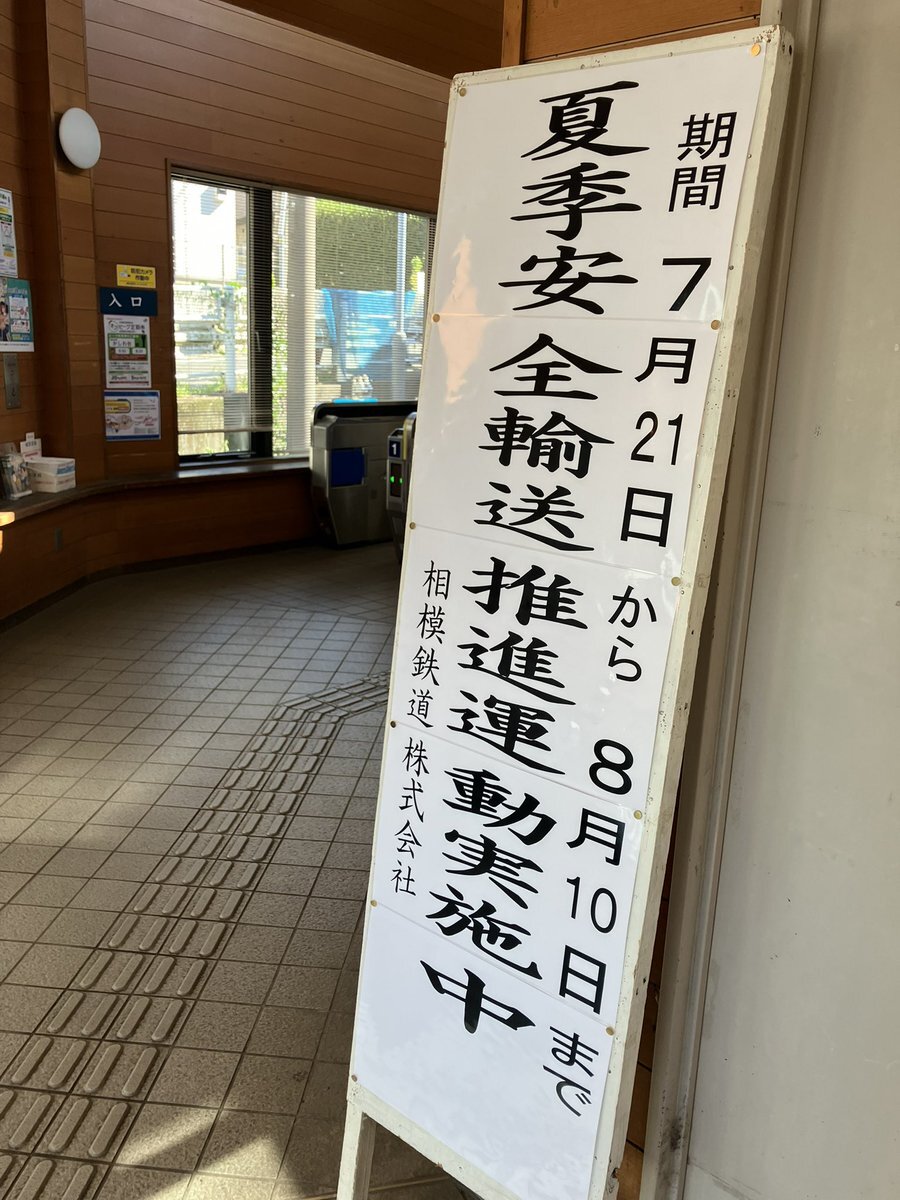 期間 7月21日から 8月10日まで
夏季安全輸送推進運動実施中
相模鉄道株式会社
防犯カメラ
作動中
入口
1